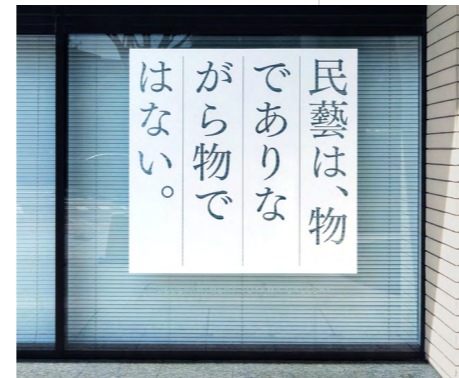 民藝は、物
でありな
がら物で
はない。